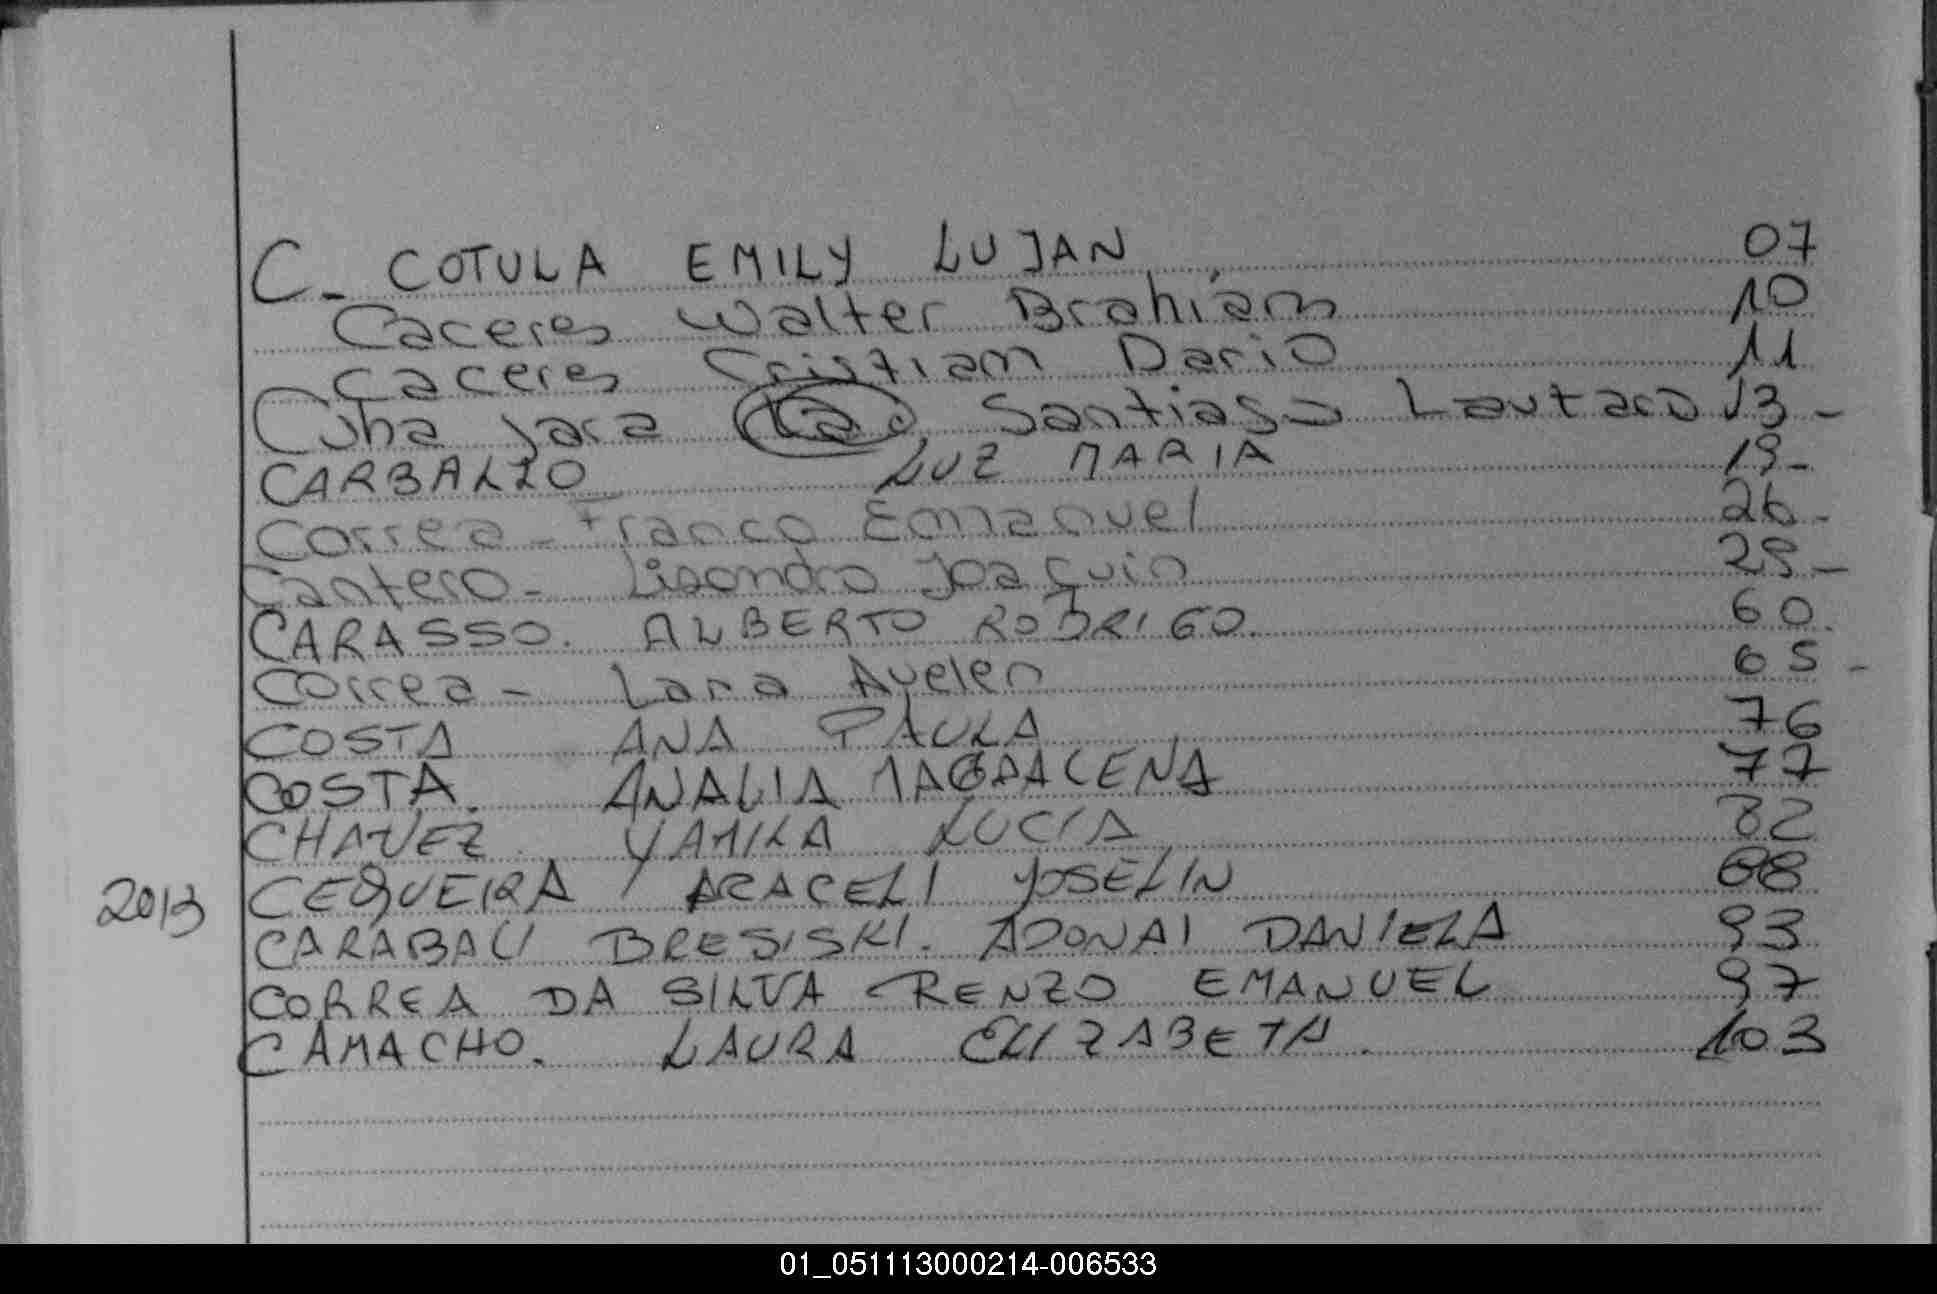 C- COTULA EMILY LUJAN 07
Caceres Walter Brahiam 10
Caceres Cristian Dario 11
Cuba Jara Santiago Lautaro 13-
CARBALLO LUZ MARIA 19-
Correa - Franco Emanuel 26-
Cantero - Lisandro Joaquin 29-
CARASSO. ALBERTO RODRIGO. 60.
Correa - Lara Ayelen 65-
COSTA ANA PAULA 76
COSTA. ANALIA MAGDALENA 77
CHAVEZ YAMILA LUCIA 82
2013 CEQUEIRA ARACELI YOSELIN 88
CARABALI BRESISKI. ADONAI DANIELA 93
CORREA DA SILVA RENZO EMANUEL 97
CAMACHO. LAURA ELIZABETH. 103
01_051113000214-006533